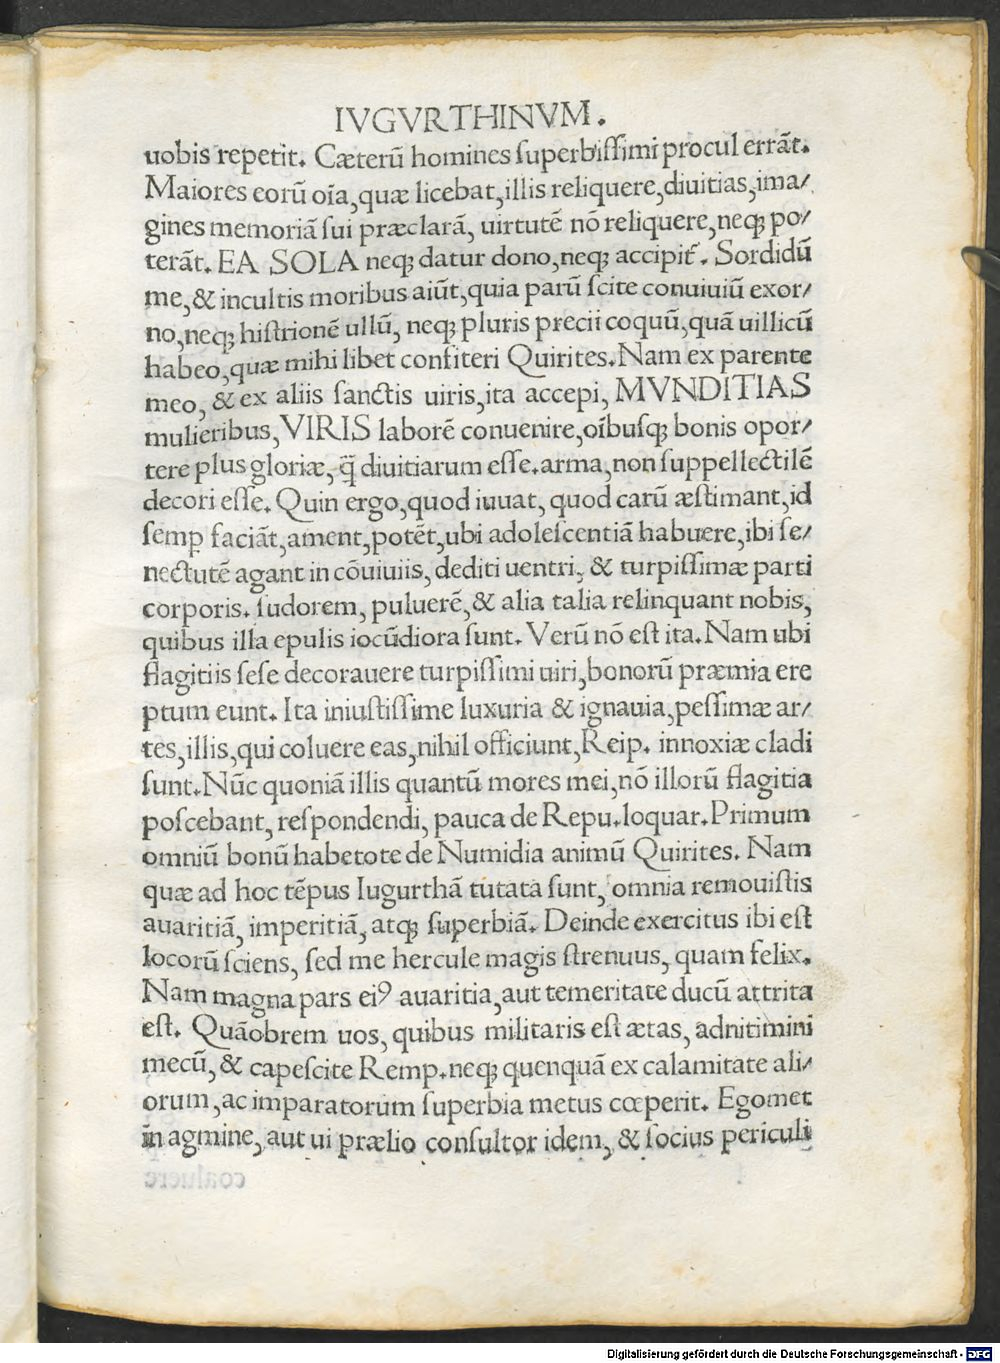 IVGVRTHINVM.
uobis repetit. Cæterũ homines ſuperbiſſimi procul errãt.
Maiores eorũ oĩa, quæ licebat, illis reliquere, diuitias, ima/
gines memoriã ſui præclarã, uirtutẽ nõ reliquere, neqꝫ po/
terãt. EA SOLA neqꝫ datur dono, neqꝫ accipit̃. Sordidũ
me, & incultis moribus aiũt, quia parũ ſcite conuiuiũ exor/
no, neqꝫ hiſtrionẽ ullũ, neqꝫ pluris precii coquũ, quã uillicũ
habeo, quæ mihi libet confiteri Quirites. Nam ex parente
meo, & ex aliis ſanctis uiris, ita accepi, MVNDITIAS
mulieribus, VIRIS laborẽ conuenire, oĩbuſqꝫ bonis opor/
tere plus gloriæ, q̃ diuitiarum eſſe. arma, non ſuppellectilẽ
decori eſſe. Quin ergo, quod iuuat, quod carũ æſtimant, id
ſemꝑ faciãt, ament, potẽt, ubi adoleſcentiã habuere, ibi ſe/
nectutẽ agant in cõuiuiis, dediti uentri, & turpiſſimæ parti
corporis. ſudorem, puluerẽ, & alia talia relinquant nobis,
quibus illa epulis iocũdiora ſunt. Verũ nõ eſt ita. Nam ubi
flagitiis ſeſe decorauere turpiſſimi uiri, bonorũ præmia ere
ptum eunt. Ita iniuſtiſſime luxuria & ignauia, peſſimæ ar/
tes, illis, qui coluere eas, nihil officiunt, Reip. innoxiæ cladi
ſunt. Nũc quoniã illis quantũ mores mei, nõ illorũ flagitia
poſcebant, reſpondendi, pauca de Repu. loquar. Primum
omniũ bonũ habetote de Numidia animũ Quirites. Nam
quæ ad hoc tẽpus Iugurthã tutata ſunt, omnia remouiſtis
auaritiã, imperitiã, atqꝫ ſuperbiã. Deinde exercitus ibi eſt
locorũ ſciens, ſed me hercule magis ſtrenuus, quam felix.
Nam magna pars eiꝰ auaritia, aut temeritate ducũ attrita
eſt. Quãobrem uos, quibus militaris eſt ætas, adnitimini
mecũ, & capeſcite Remp. neqꝫ quenquã ex calamitate ali/
orum, ac imparatorum ſuperbia metus cœperit. Egomet
in agmine, aut ui prælio conſultor idem, & ſocius periculi
coaluere
Digitalisierung gefördert durch die Deutsche Forschungsgemeinschaft - DFG